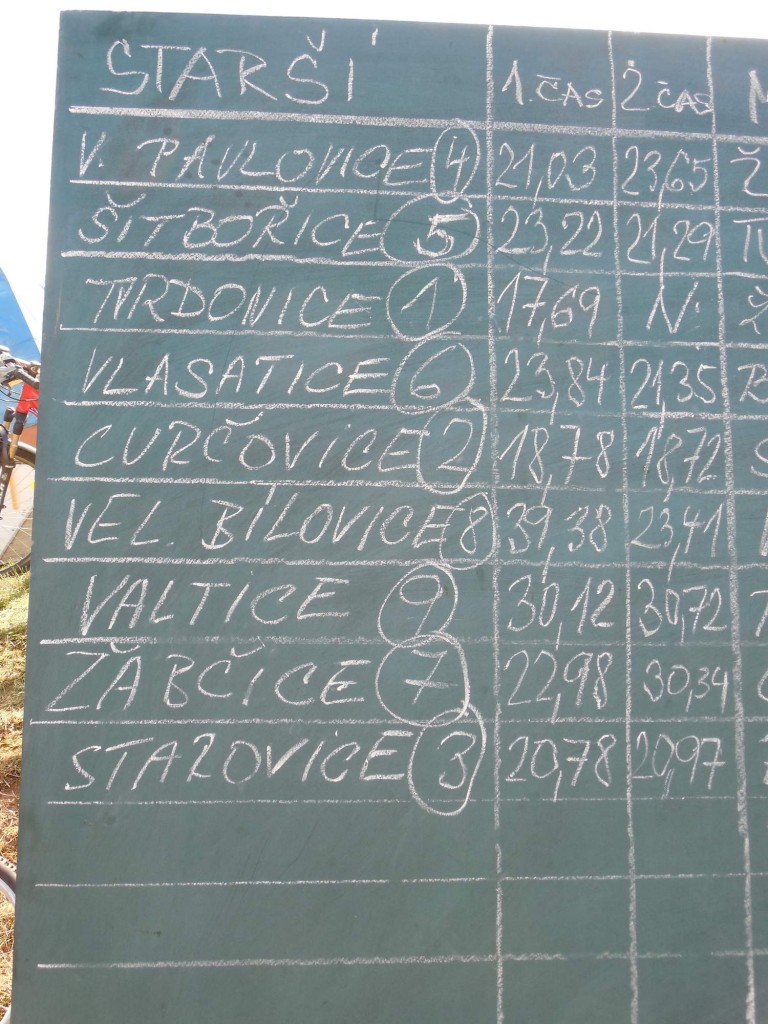 STARŠÍ 1. ČAS 2. ČAS
V. PAVLOVICE 4 21,03 23,65
ŠITBOŘICE 5 23,22 21,29
TVRDONICE 1 17,69 N.
VLASATICE 6 23,84 21,35
CVRČOVICE 2 18,78 18,72
VEL. BÍLOVICE 8 39,38 23,41
VALTICE 9 30,12 30,72
ŽABČICE 7 22,98 30,34
STAROVICE 3 20,78 20,97